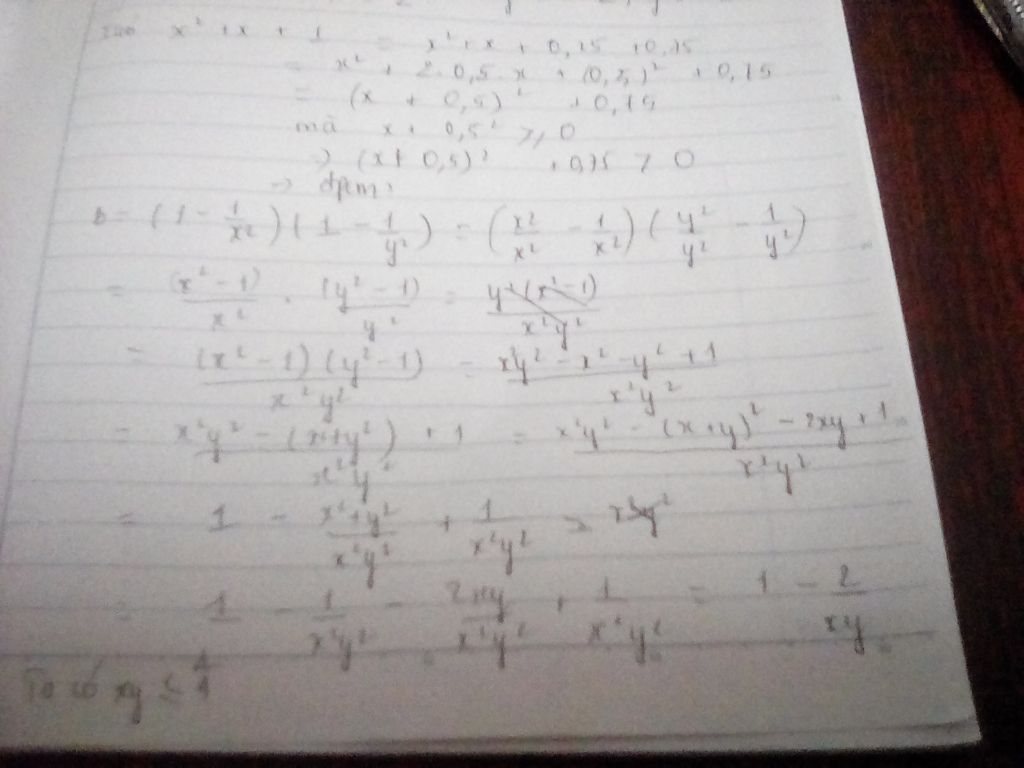 x² + x + 1 = x² + x + 0,25 + 0,75
= x² + 2.0,5.x + (0,5)² + 0,75
= (x + 0,5)² + 0,75
mà x + 0,5² ≥ 0
→ (x + 0,5)² + 0,75 > 0
→ đpcm.
B = (1 - 1/x²)(1 - 1/y²) = (x²/x² - 1/x²)(y²/y² - 1/y²)
= (x² - 1)/x² . (y² - 1)/y² = y²(x² - 1)/x²y²
= (x² - 1)(y² - 1)/x²y² = x²y² - x² - y² + 1/x²y²
= x²y² - (x² + y²) + 1/x²y² = x²y² - (x + y)² - 2xy + 1/x²y²
= 1 - x² + y²/x²y² + 1/x²y²
= 1 - 1/x²y² - 2xy/x²y² + 1/x²y² = 1 - 2/xy
Ta có xy ≤